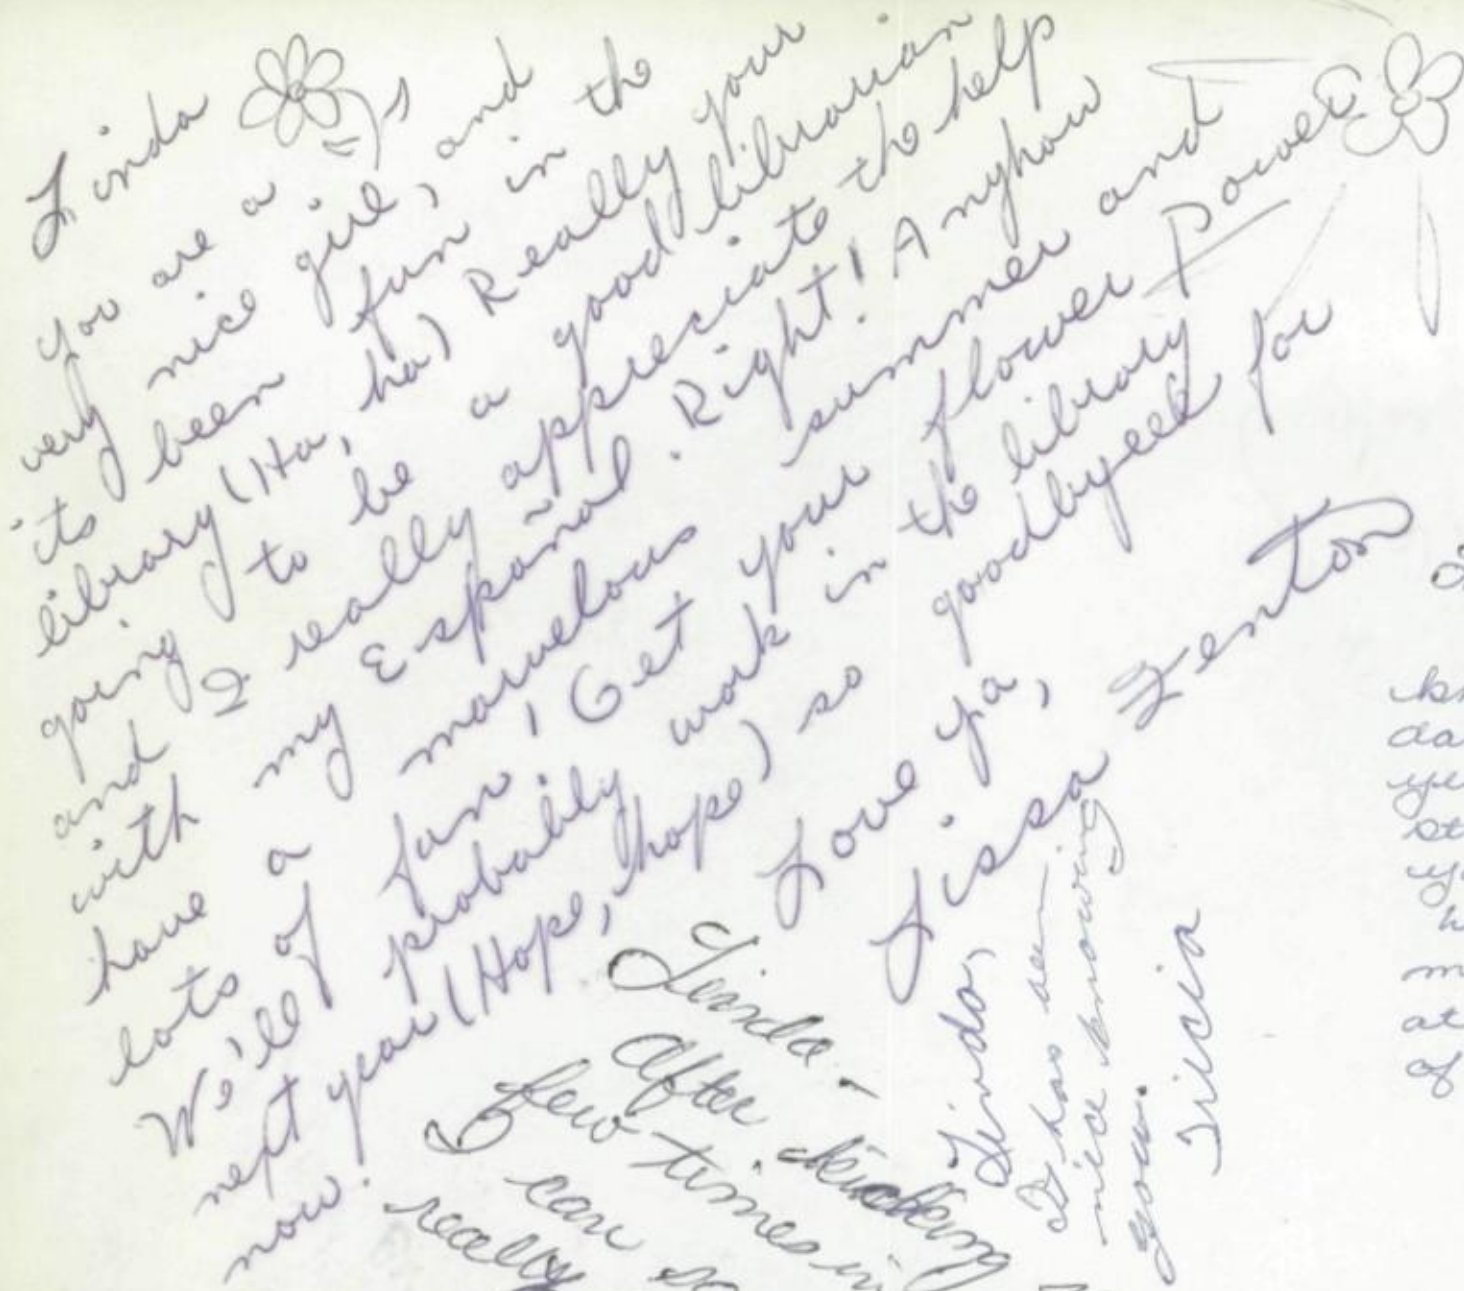 Linda
you are a
very nice girl, and
its been fun in the
library (Ha, ha) Really your
going to be a good librarian
and I really appreciate the help
with my Español. Right! Anyhow
have a marvelous summer and
lots of fun! Get your flower Power
We'll probably work in the library
next year (Hope, hope) so goodbyeee for
now!
Love ya,
Lissa Fenton
Linda -
After
few times in
I can so
really
Linda,
It has been
nice knowing
you.
Tricia
da
st
h
m
at
of